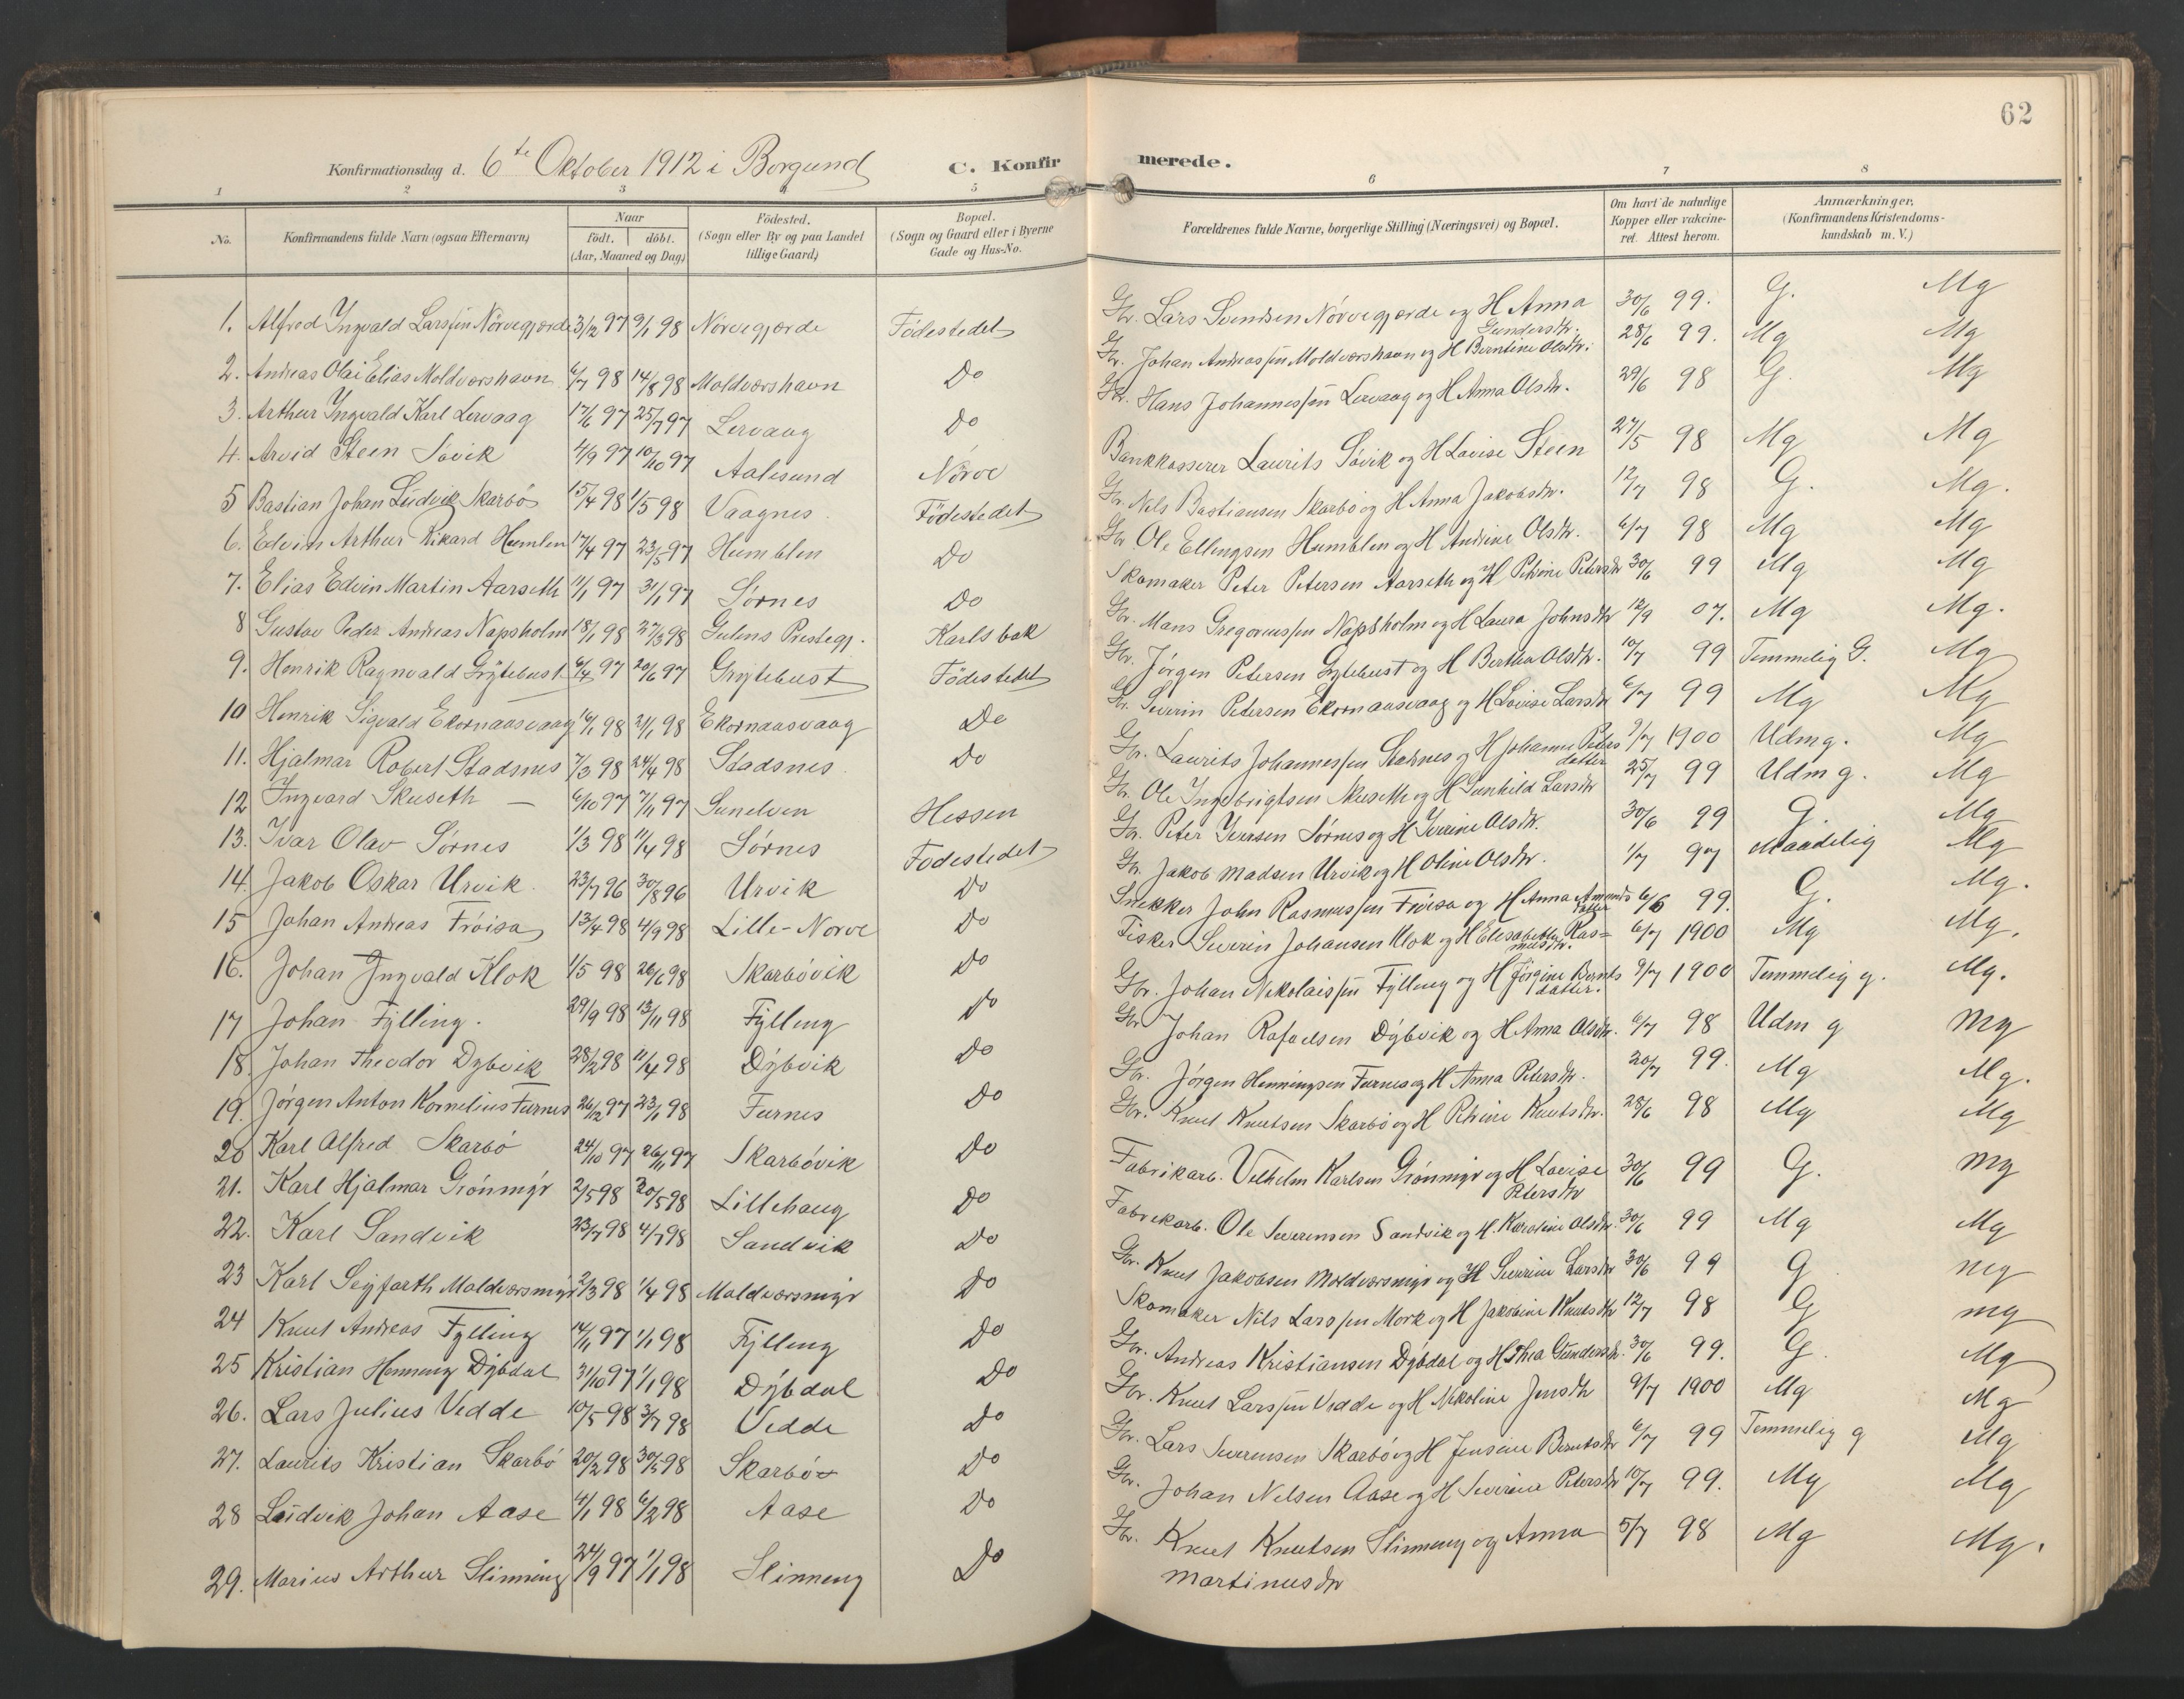 62
Konfirmationsdag d. 6te Oktober 1912 i Borgund C. Konfirmerede.
1 2 3 4 5 6 7 8
No. Konfirmandens fulde Navn (ogsaa Efternavn) Naar født. døbt. (Aar, Maaned og Dag) Födested. (Sogn eller By og paa Landet tillige Gaard) Bopæl. (Sogn og Gaard eller i Byerne Gade og Hus-No. Forældrenes fulde Navne, borgerlige Stilling (Næringsvei) og Bopæl. Om havt de naturlige Kopper eller vakcineret. Attest herom. Anmærkninger, (Konfirmandens Kristendomskundskab m. V.)
1. Alfred Ingvald Larssen Nörvegjærde 3/12 97 9/1 98 Nörvegjærde Födestedet Gbr. Lars Svendsen Nörvegjærde og H Anna Gundersdtr. 30/6 99. G. Mg
2. Andreas Olai Elias Moldværshavn 6/7 98 14/8 98 Moldværshavn Do Gbr. Johan Andreassen Moldværshavn og H Berntine Olsdtr. 28/6 99. Mg Mg
3. Arthur Ingvald Karl Lervaag 17/6 97 25/7 97 Lervaag Do Gbr. Hans Johannessen Lervaag og H Anna Olsdtr. 29/6 98 G. Mg
4. Arvid Steen Søvik 4/9 97 10/10 97 Aalesund Nörve Bankkasserer Laurits Søvik og H Lovise Steen 27/5 98 Mg Mg
5 Bastian Johan Ludvik Skarbö 15/4 98 1/5 98 Vaagnes Födestedet Gbr. Nils Bastiansen Skarbö og H Anna Jakobsdtr. 12/7 98 G. Mg.
6. Edvin Arthur Rikard Humlen 17/4 97 23/5 97 Humblen Do Gbr Ole Ellingsen Humblen og H Andrine Olsdtr. 6/7 98 Mg Mg
7. Elias Edvin Martin Aarseth 11/1 97 31/1 97 Sørnes Do Skomaker Peter Petersen Aarseth og H Petrine Petersdtr 30/6 99 Mg Mg
8 Gustav Peder Andreas Napsholm 18/1 98 27/3 98 Gulens Prestegj. Karlsbak Gbr. Mans Gregoriussen Napsholm og H Laura Johnsdtr 12/9 07. Mg Mg.
9. Henrik Ragnvald Grytebust 6/4 97 20/6 97 Grytebust Födestedet Gbr. Jørgen Petersen Grytebust og H Bertha Olsdtr. 10/7 99 Temmelig G. Mg
10 Henrik Sigvald Ekornaasvaag 16/1 98 21/1 98 Ekornaasvaag Do Gbr. Severin Petersen Ekornaasvaag og H Lovise Larsdtr 6/7 99 Mg Mg
11. Hjalmar Robert Stadsnes 7/3 98 24/4 98 Stadsnes Do Gbr. Laurits Johannessen Stadsnes og H Johanne Petersdatter 9/7 1900 Udmg. Mg
12 Ingvard Skuseth 6/10 97 7/11 97 Sunelven Hessen Gbr. Ole Ingebrigtsen Skuseth og H Gunhild Larsdtr 25/7 99 Udmg. Mg
13. Ivar Olav Sørnes 1/3 98 11/4 98 Sørnes Födestedet Gbr. Peter Iversen Sørnes og H Iverine Olsdtr. 30/6 99 G. Mg
14. Jakob Oskar Urvik. 23/7 96 30/8 96 Urvik Do Gbr. Jakob Madsen Urvik og H Oline Olsdtr. 1/7 97 Maadelig Mg
15 Johan Andreas Fröisa 13/4 98 4/9 98 Lille-Nörve Do Snekker John Rasmussen Fröisa og H Anna Amundsdatter 6/6 99. G. Mg.
16. Johan Ingvald Klok 1/5 98 26/6 98 Skarbövik Do Fisker Severin Johansen Klok og H Elisabeth Rasmusdtr. 6/7 1900 Mg Mg.
17 Johan Fylling. 29/9 98 13/11 98 Fylling Do Gbr. Johan Nikolaissen Fylling og H Jørgine Berntsdatter. 9/7 1900 Temmelig g. Mg.
18. Johan Theodor Dybvik 28/2 98 11/4 98 Dybvik Do Gbr Johan Rafaelsen Dybvik og H Anna Olsdtr. 6/7 98 Udm g Mg
19. Jørgen Anton Kornelius Furnes 26/12 97 23/1 98 Furnes Do Gbr. Jørgen Henningsen Furnes og H Anna Petersdtr. 20/7 99. Mg Mg.
20 Karl Alfred Skarbö 24/10 97 26/11 97 Skarbövik Do Gbr. Knut Knutsen Skarbö og H Petrine Knutsdtr. 28/6 98 Mg Mg
21. Karl Hjalmar Grönmyr 2/5 98 20/5 98 Lillehaug Do Fabrikarb. Vilhelm Karlsen Grönmyr og H Lovise Petersdtr 30/6 99 G. Mg
22. Karl Sandvik 23/7 98 4/7 98 Sandvik Do Fabrikarb. Ole Severinsen Sandvik og H. Karoline Olsdtr. 30/6 99 Mg Mg
23 Karl Seyfarth Moldværsmyr 2/3 98 1/4 98 Moldværsmyr Do Gbr. Knut Jakobsen Moldværsmyr og H Severine Larsdtr 30/6 99 G Mg
24 Knut Andreas Fylling 14/11 97 1/1 98 Fylling Do Skomaker Nils Larssen Mork og H Jakobine Knutsdtr 12/7 98 G Mg
25 Kristian Henning Dybdal 31/10 97 1/1 98 Dybdal Do Gbr. Andreas Kristiansen Dybdal og H Thea Gundersdtr. 30/6 99. G. Mg
26. Lars Julius Vedde 10/5 98 3/7 98 Vedde Do Gbr. Knut Larssen Vedde og H Nikoline Jensdtr 9/7 1900 Mg Mg
27. Laurits Kristian Skarbö 20/2 98 30/5 98 Skarbö Do Gbr. Lars Severinsen Skarbö og H Jensine Berntsdtr 6/7 99 Temmelig g Mg
28 Ludvik Johan Aase 4/1 98 6/2 98 Aase Do Gbr. Johan Nelsen Aase og H Severine Petersdtr 10/7 99. Mg Mg
29. Marius Arthur Slinning 24/9 97 1/1 98 Slinning Do Gbr. Knut Knutsen Slinning og Anna Martinusdtr 5/7 98 Mg Mg.